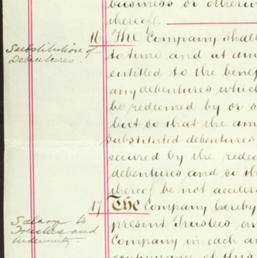 business or otherwise
thereof.
16. The Company shall
Substitution of
Debentures.
to time and at an
entitled to the bene
any debentures which
be redeemed by or o
but so that the am
substituted debentures
secured by the rede
debentures and so th
thereof be not accele
17 The Company hereby
Salary to
Trustees and
indemnity
present Trustees, an
Company in each an